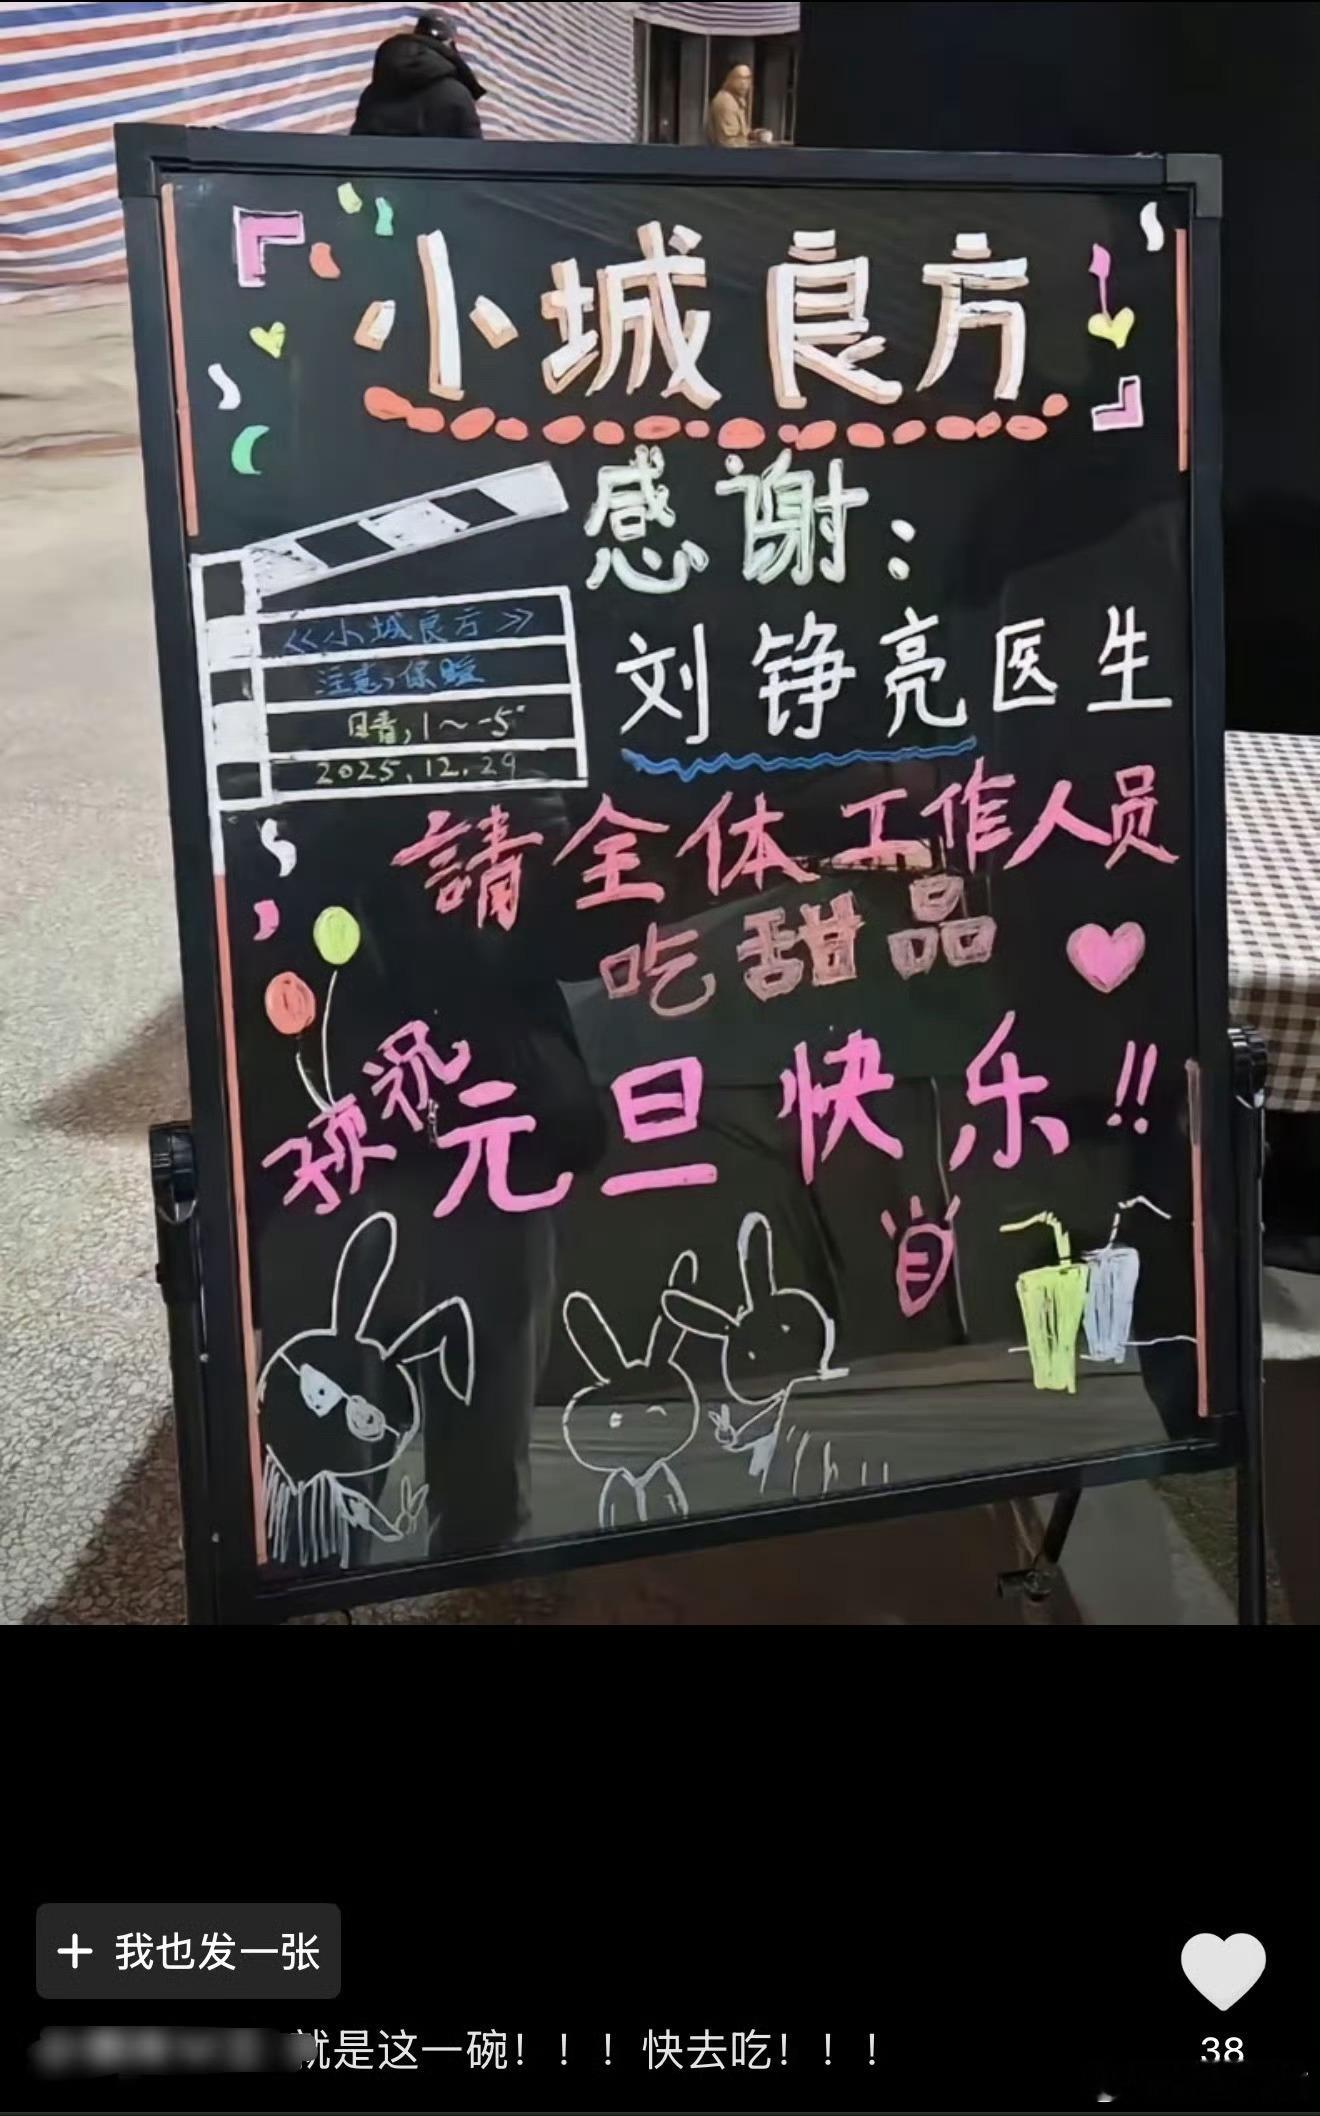 小城良方
感谢：
《小城良方》
注意，保暖
日青，1～-5°
2025.12.29
刘铮亮医生
請全体工作人员
吃甜品
祝元旦快乐!!
我也发一张
就是这一碗！！！快去吃！！！
38